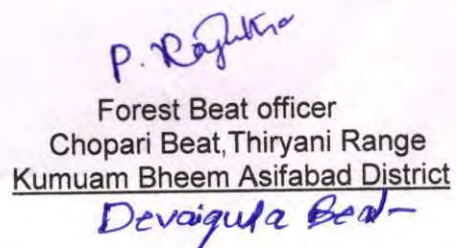 P.
Forest Beat officer
Chopari Beat,Thiryani Range
Kumuam Bheem Asifabad District
Devaiguda Beat